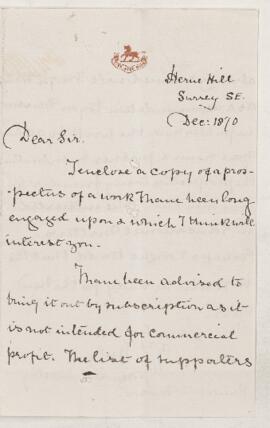 Herne Hill
Surrey S.E.
Dec: 1870
Dear Sir.
I enclose a copy of a pros-
pectus of a work I have been long
engaged upon & which I think will
interest you.
I have been advised to
bring it out by subscription as it
is not intended for commercial
profit. The list of supporters